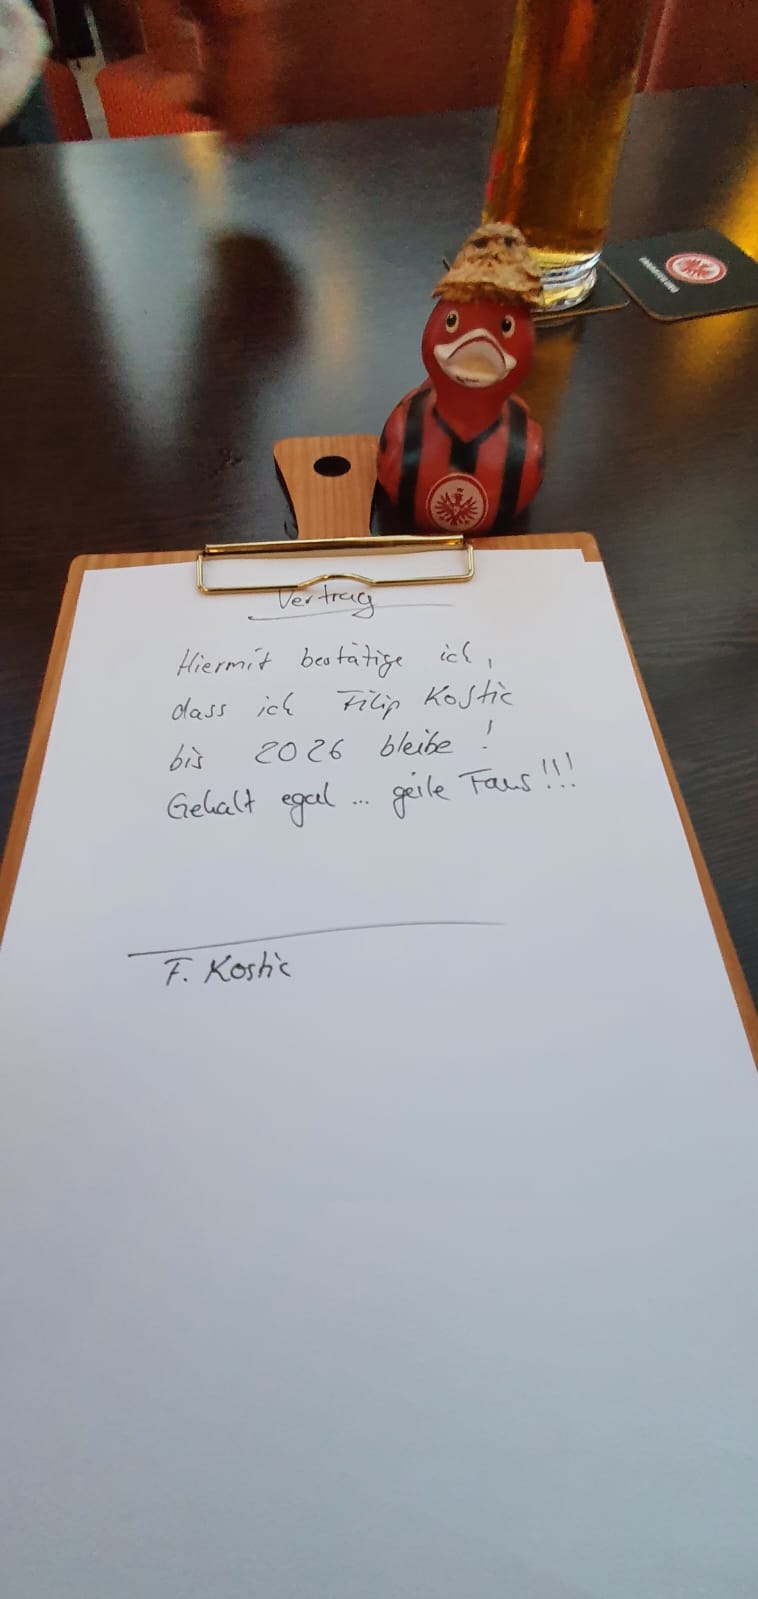 Vertrag
Hiermit bestätige ich,
dass ich Filip Kostic
bis 2026 bleibe !
Gehalt egal ... geile Fans!!!
F. Kostic